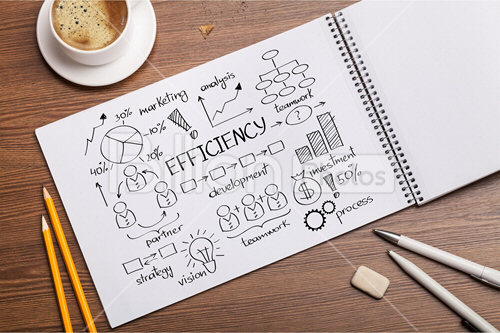 30%
marketing
analysis
teamwork
10%
40%
20%
EFFICIENCY
?
development
investment
$
50%
partner
teamwork
process
strategy
vision